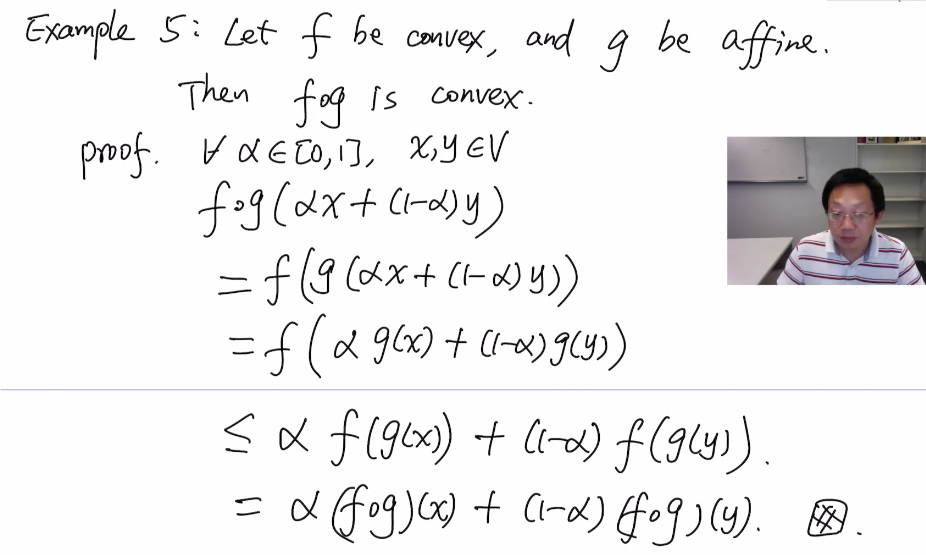 Example 5: Let f be convex, and g be affine.
Then f∘g is convex.
proof. ∀ α ∈ [0,1], x,y ∈ V
f∘g(αx + (1-α)y)
= f(g(αx + (1-α)y))
= f(αg(x) + (1-α)g(y))
≤ α f(g(x)) + (1-α) f(g(y)).
= α(f∘g)(x) + (1-α)(f∘g)(y). ▨.